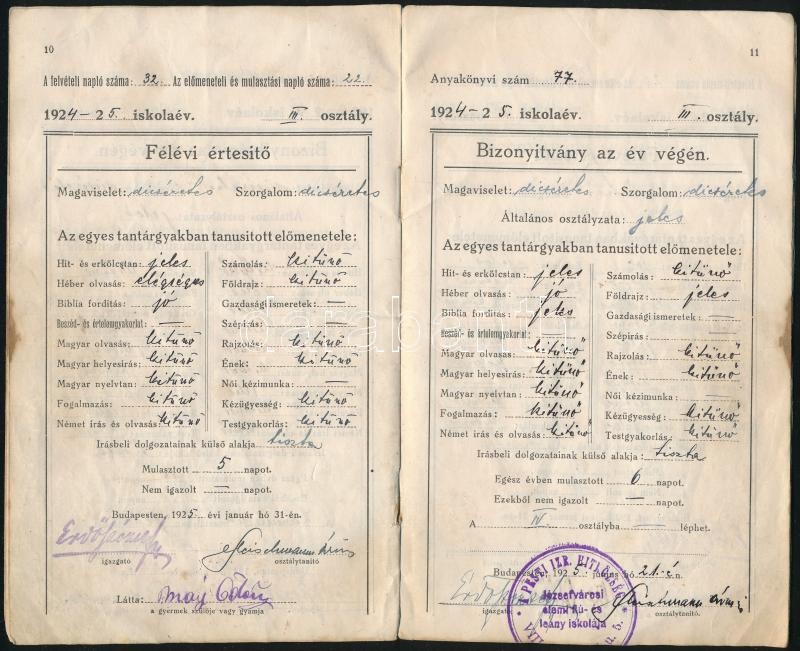 10
A felvételi napló száma: 32. Az előmeneteli és mulasztási napló száma: 22.
1924-25. iskolaév. III. osztály.
Félévi értesitő
Magaviselet: dicséretes Szorgalom: dicséretes
Az egyes tantárgyakban tanusitott előmenetele:
Hit- és erkölcstan: jeles
Héber olvasás: elégséges
Biblia forditás: jó
Beszéd- és értelemgyakorlat: —
Magyar olvasás: kitünő
Magyar helyesirás: kitünő
Magyar nyelvtan: kitünő
Fogalmazás: kitünő
Német irás és olvasás: kitünő
Számolás: kitünő
Földrajz: kitünő
Gazdasági ismeretek: —
Szépirás: —
Rajzolás: kitünő
Ének: kitünő
Női kézimunka: —
Kézügyesség: kitünő
Testgyakorlás: kitünő
Irásbeli dolgozatainak külső alakja: tiszta
Mulasztott 5 napot.
Nem igazolt — napot.
Budapesten, 1925 évi január hó 31-én.
igazgató osztálytanitó
Látta:
a gyermek szülője vagy gyámja
11
Anyakönyvi szám 77.
1924-25. iskolaév. III. osztály.
Bizonyitvány az év végén.
Magaviselet: dicséretes Szorgalom: dicséretes
Általános osztályzata: jeles
Az egyes tantárgyakban tanusitott előmenetele:
Hit- és erkölcstan: jeles
Héber olvasás: jó
Biblia forditás: jeles
Beszéd- és értelemgyakorlat: —
Magyar olvasás: kitünő
Magyar helyesirás: kitünő
Magyar nyelvtan: kitünő
Fogalmazás: kitünő
Német irás és olvasás: kitünő
Számolás: kitünő
Földrajz: jeles
Gazdasági ismeretek: —
Szépirás: —
Rajzolás: kitünő
Ének: kitünő
Női kézimunka: —
Kézügyesség: kitünő
Testgyakorlás: kitünő
Irásbeli dolgozatainak külső alakja: tiszta
Egész évben mulasztott 6 napot.
Ezekből nem igazolt — napot.
A IV osztályba — léphet.
Budapesten, 1925. junius hó 21-én.
igazgató osztálytanitó.
A PESTI IZR. HITKÖZSÉG
Józsefvárosi
elemi fiú- és
leány iskolája
VIII
u. 5.
darabanth